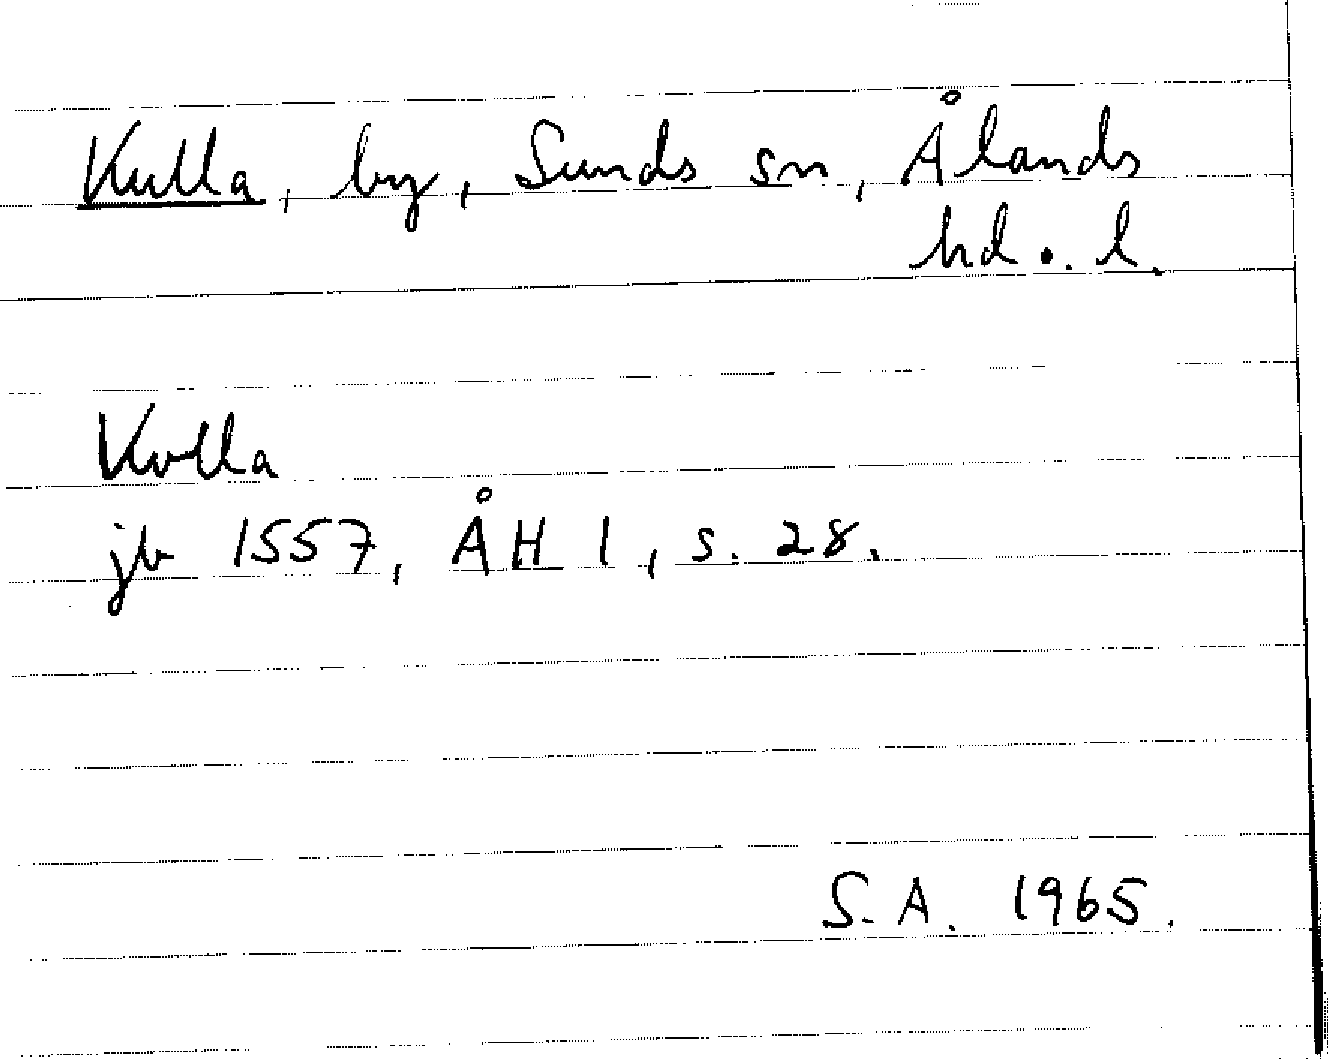 Kulla, by, Sunds sn, Ålands
hd o. l.
Kolla
jb 1557, ÅH 1, s. 28.
S.A. 1965.